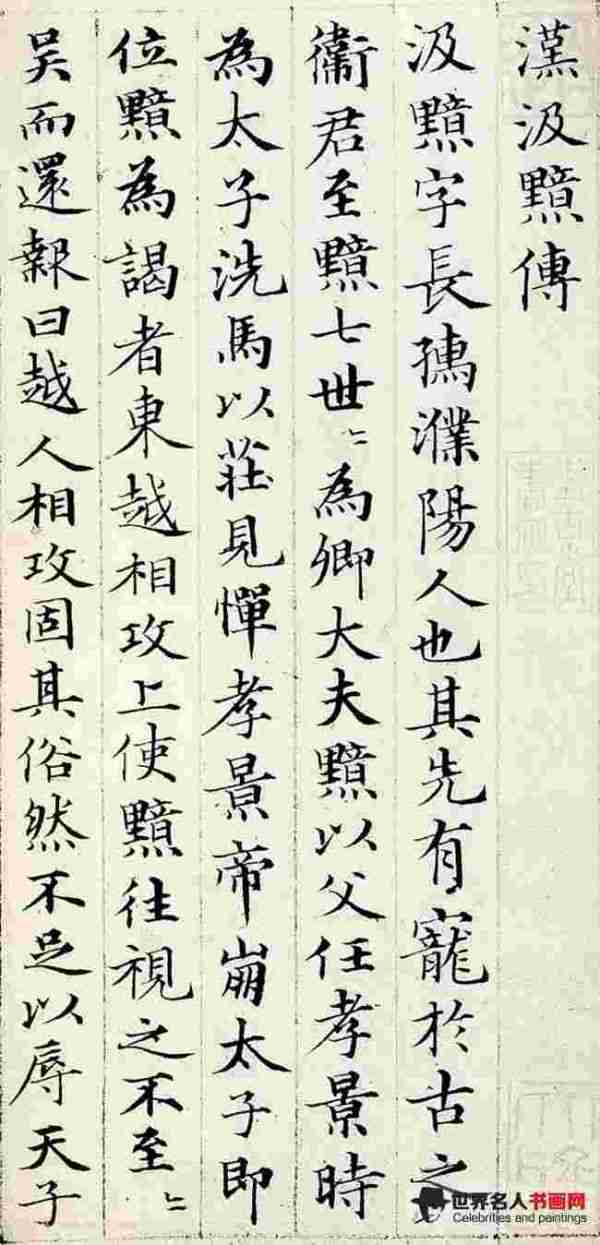 漢汲黯傳
汲黯字長孺濮陽人也其先有寵於古之
衛君至黯七世〻為卿大夫黯以父任孝景時
為太子洗馬以莊見憚孝景帝崩太子即
位黯為謁者東越相攻上使黯往視之不至〻
吳而還報曰越人相攻固其俗然不足以辱天子
世界名人书画网
Celebrities and paintings